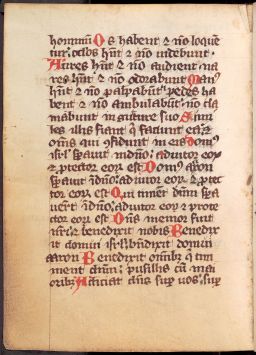 hominū Os habent et nō loque
tur: oclos hñt et nō uidebunt
Aures hñt et nō audient na
res hñt et nō odorabunt Man9
hñt et nō palpabūt: pedes ha
bent et nō ambulabūt: nō cla
mabunt in gutture suo Simi
les illis fiant q faciunt ea: et
omēs qui 9fidunt in eis Dom9
isrl spauit in dño: adiutor eoꝝ
et ptector eoꝝ est Dom9 aaron
spauit ī dño: adiutor eoꝝ et ptec
tor eoꝝ est Qui timēt dnm spa
uerūt ī dño: adiutor eoꝝ et protec
tor eoꝝ est Dñs memor fuit
nri: et benedixit nobis Benedix
it domui isrl: bñdixit domui
aaron Benedixit omibꝫ q ti
ment dnm: pusillis cū ma
oribꝫ Adiciat dñs suꝑ vos: suꝑ